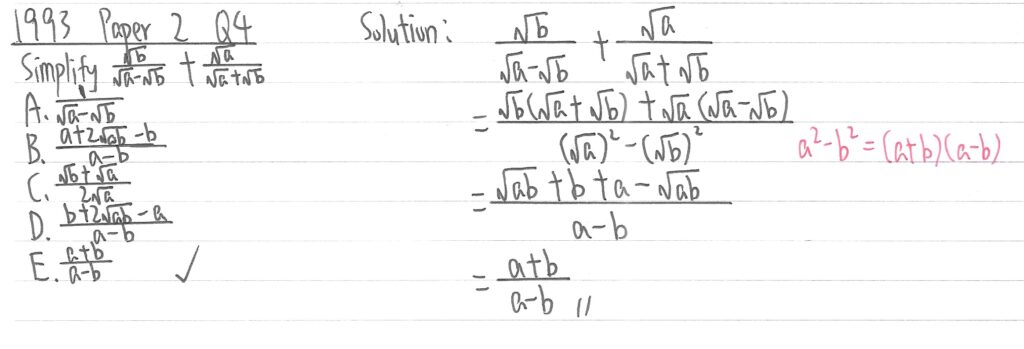 1993 Paper 2 Q4
Simplify √b/(√a-√b) + √a/(√a+√b)
A. 1/(√a-√b)
B. (a+2√ab-b)/(a-b)
C. (√b+√a)/(2√a)
D. (b+2√ab-a)/(a-b)
E. (a+b)/(a-b) ✓
Solution: √b/(√a-√b) + √a/(√a+√b)
= (√b(√a+√b)+√a(√a-√b))/((√a)²-(√b)²)
a²-b²=(a+b)(a-b)
= (√ab+b+a-√ab)/(a-b)
= (a+b)/(a-b) //